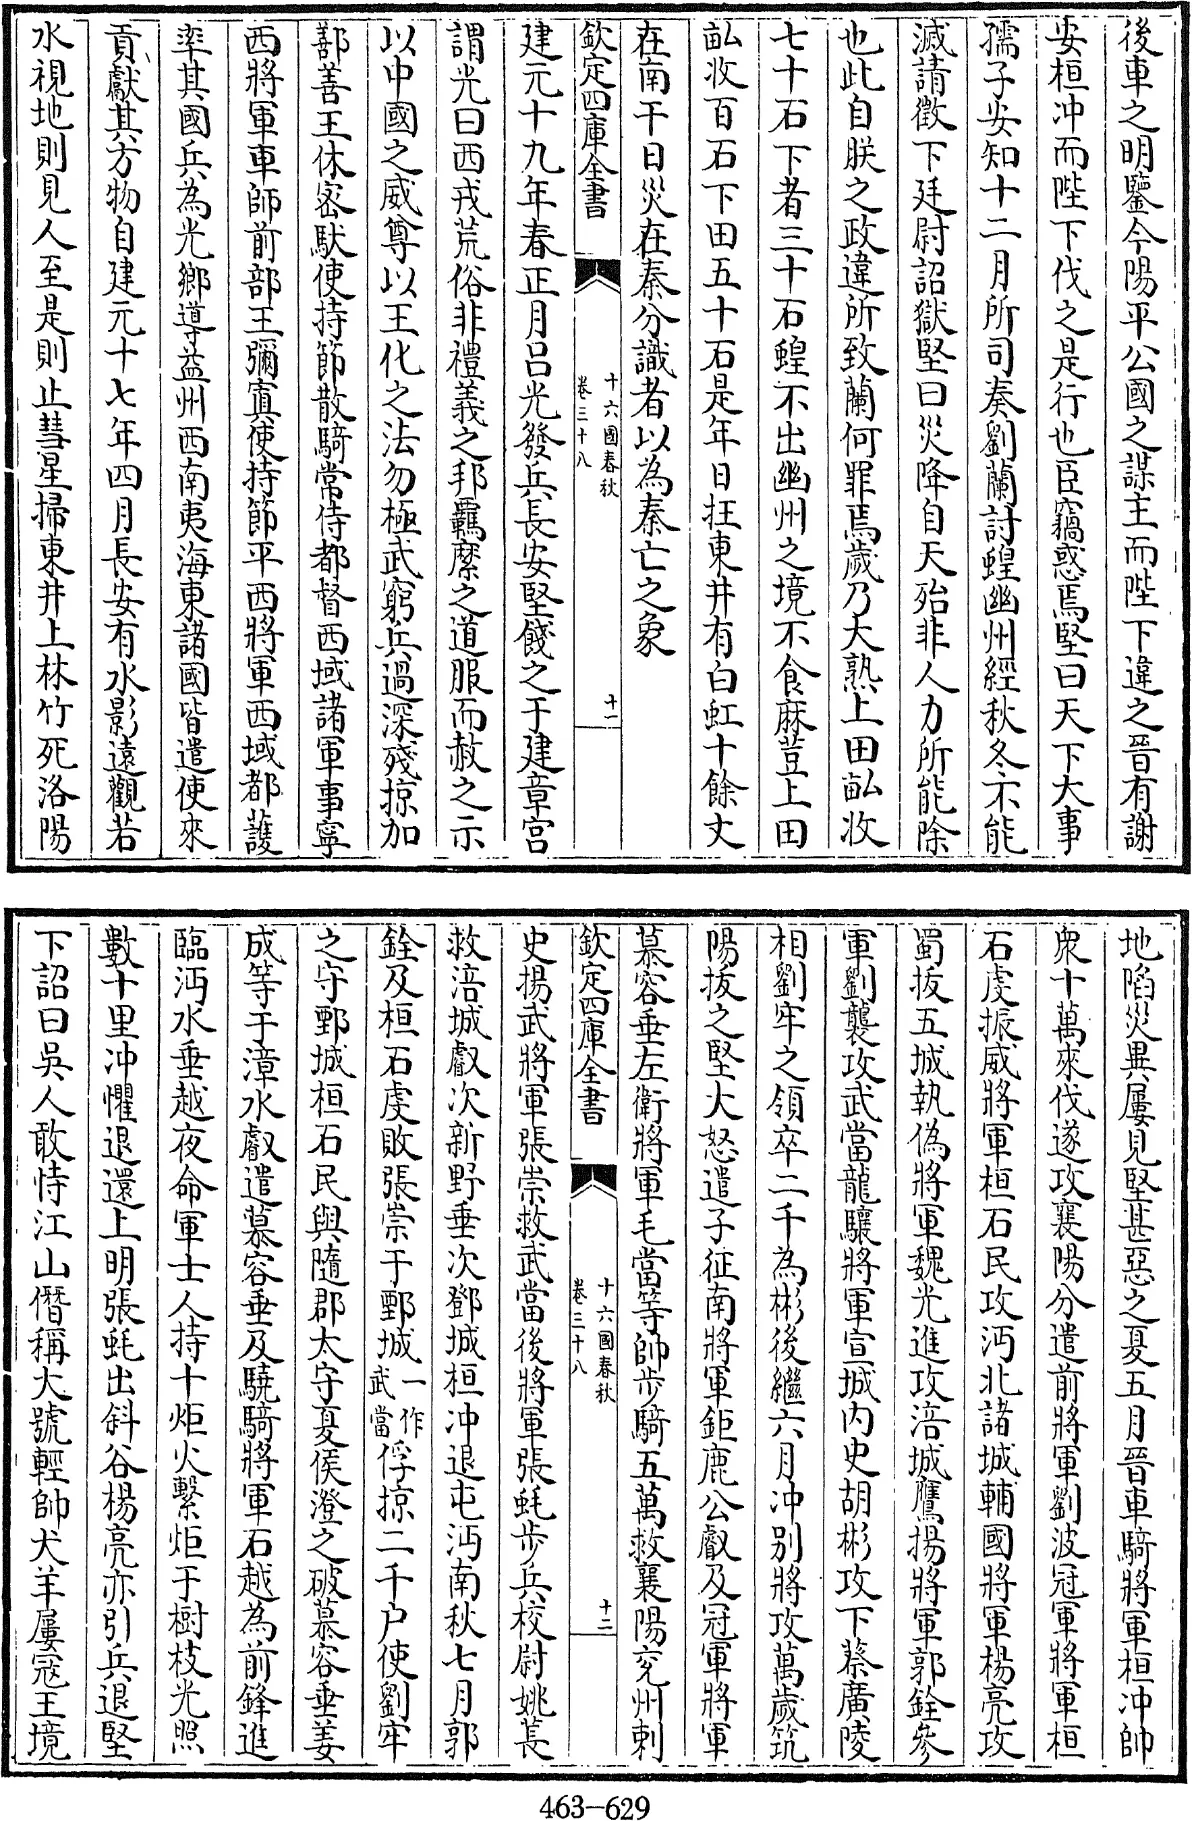 後車之明鑒今陽平公國之謀主而陛下違之晉有謝
安桓冲而陛下伐之是行也臣竊惑焉堅曰天下大事
孺子安知十二月所司奏劉蘭討蝗幽州經秋冬不能
滅請徵下廷尉詔獄堅曰災降自天殆非人力所能除
也此自朕之政違所致蘭何罪焉歲乃大熟上田畝收
七十石下者三十石蝗不出幽州之境不食麻荳上田
畝收百石下田五十石是年日抂東井有白虹十餘丈
在南干日災在秦分識者以為秦亡之象
欽定四庫全書
十六國春秋
卷三十八
十一
建元十九年春正月呂光發兵長安堅餞之于建章宮
謂光曰西戎荒俗非禮義之邦羈縻之道服而赦之示
以中國之威尊以王化之法勿極武窮兵過深殘掠加
鄯善王休密馱使持節散騎常侍都督西域諸軍事寧
西將軍車師前部王彌寘使持節平西將軍西域都護
率其國兵為光鄉導益州西南夷海東諸國皆遣使來
貢獻其方物自建元十七年四月長安有水影遠觀若
水視地則見人至是則止彗星掃東井上林竹死洛陽
地陷災異屢見堅甚惡之夏五月晉車騎將軍桓冲帥
衆十萬來伐遂攻襄陽分遣前將軍劉波冠軍將軍桓
石虔振威將軍桓石民攻沔北諸城輔國將軍楊亮攻
蜀拔五城執偽將軍魏光進攻涪城鷹揚將軍郭銓參
軍劉襲攻武當龍驤將軍宣城內史胡彬攻下蔡廣陵
相劉牢之領卒二千為彬後繼六月冲別將攻萬歲筑
陽拔之堅大怒遣子征南將軍鉅鹿公叡及冠軍將軍
慕容垂左衛將軍毛當等帥步騎五萬救襄陽兖州刺
欽定四庫全書
十六國春秋
卷三十八
十二
史揚武將軍張崇救武當後將軍張蚝步兵校尉姚萇
救涪城叡次新野垂次鄧城桓冲退屯沔南秋七月郭
銓及桓石虔敗張崇于鄄城一作武當俘掠二千户使劉牢
之守鄄城桓石民與隨郡太守夏侯澄之破慕容垂姜
成等于漳水叡遣慕容垂及驍騎將軍石越為前鋒進
臨沔水垂越夜命軍士人持十炬火繫炬于樹枝光照
數十里冲懼退還上明張蚝出斜谷楊亮亦引兵退堅
下詔曰吳人敢恃江山僭稱大號輕帥犬羊屢冦王境
463-629